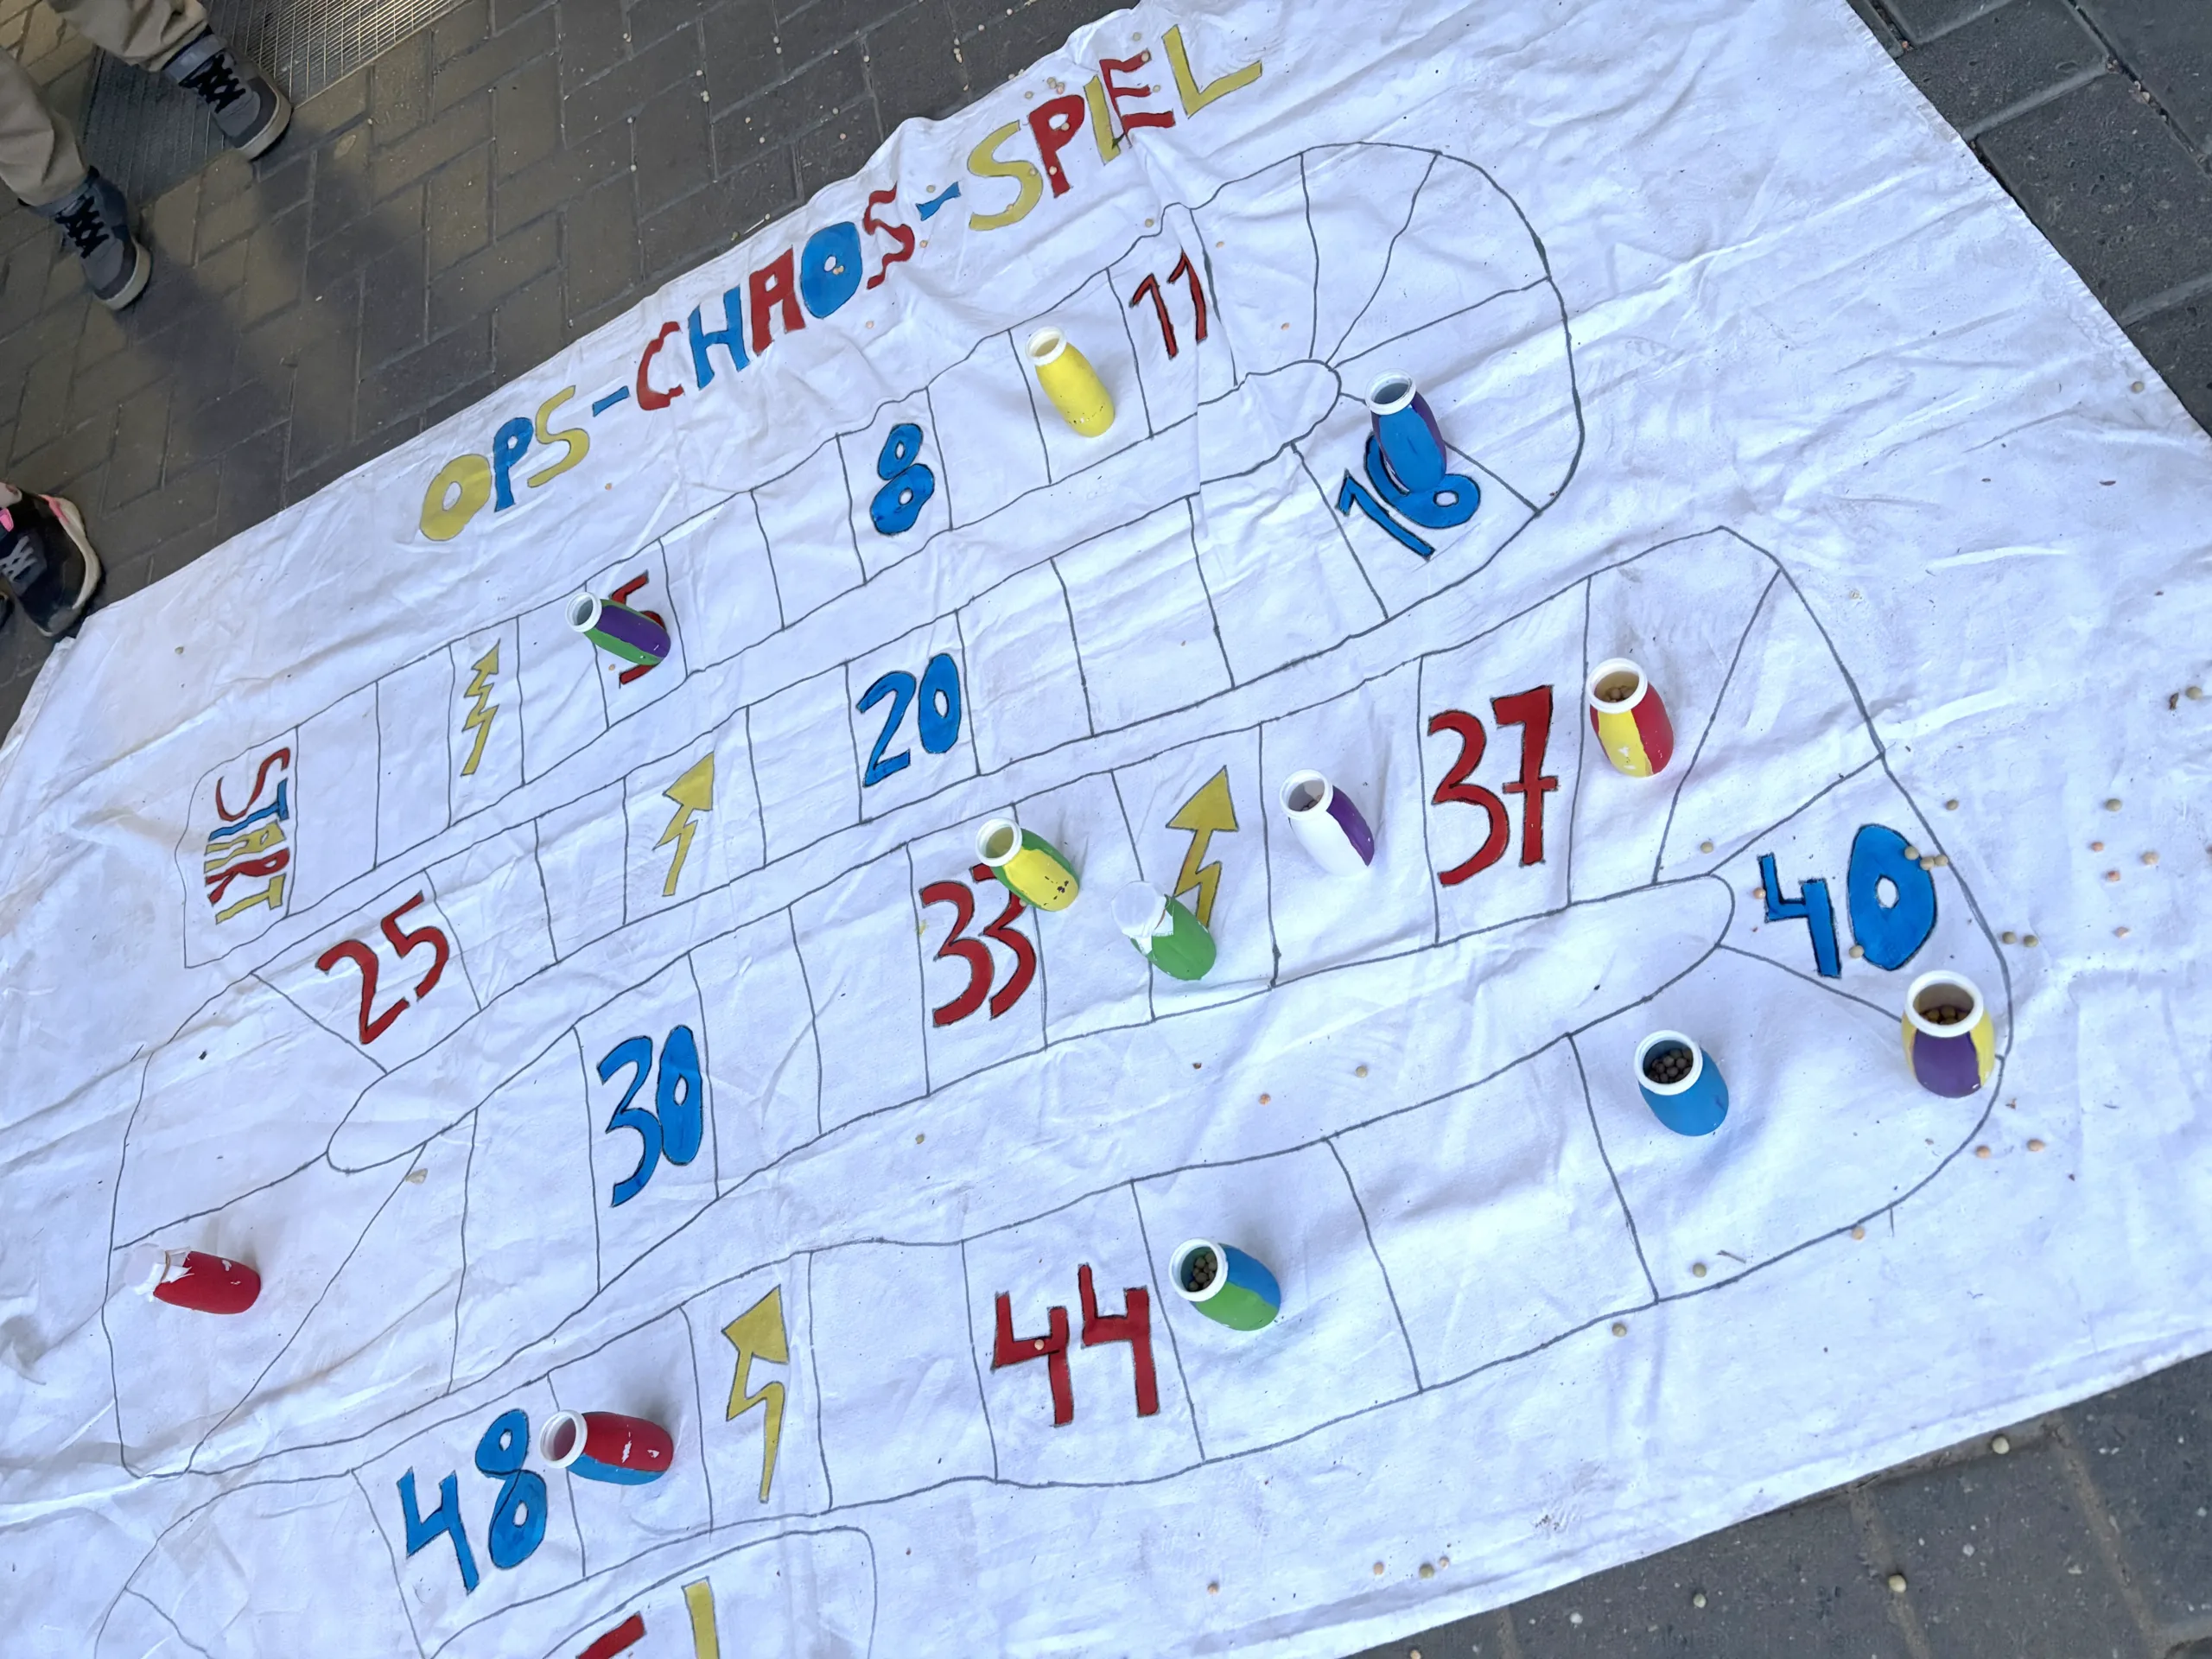 OPS-CHAOS-SPIEL
START
5
8
11
16
20
25
30
33
37
40
44
48